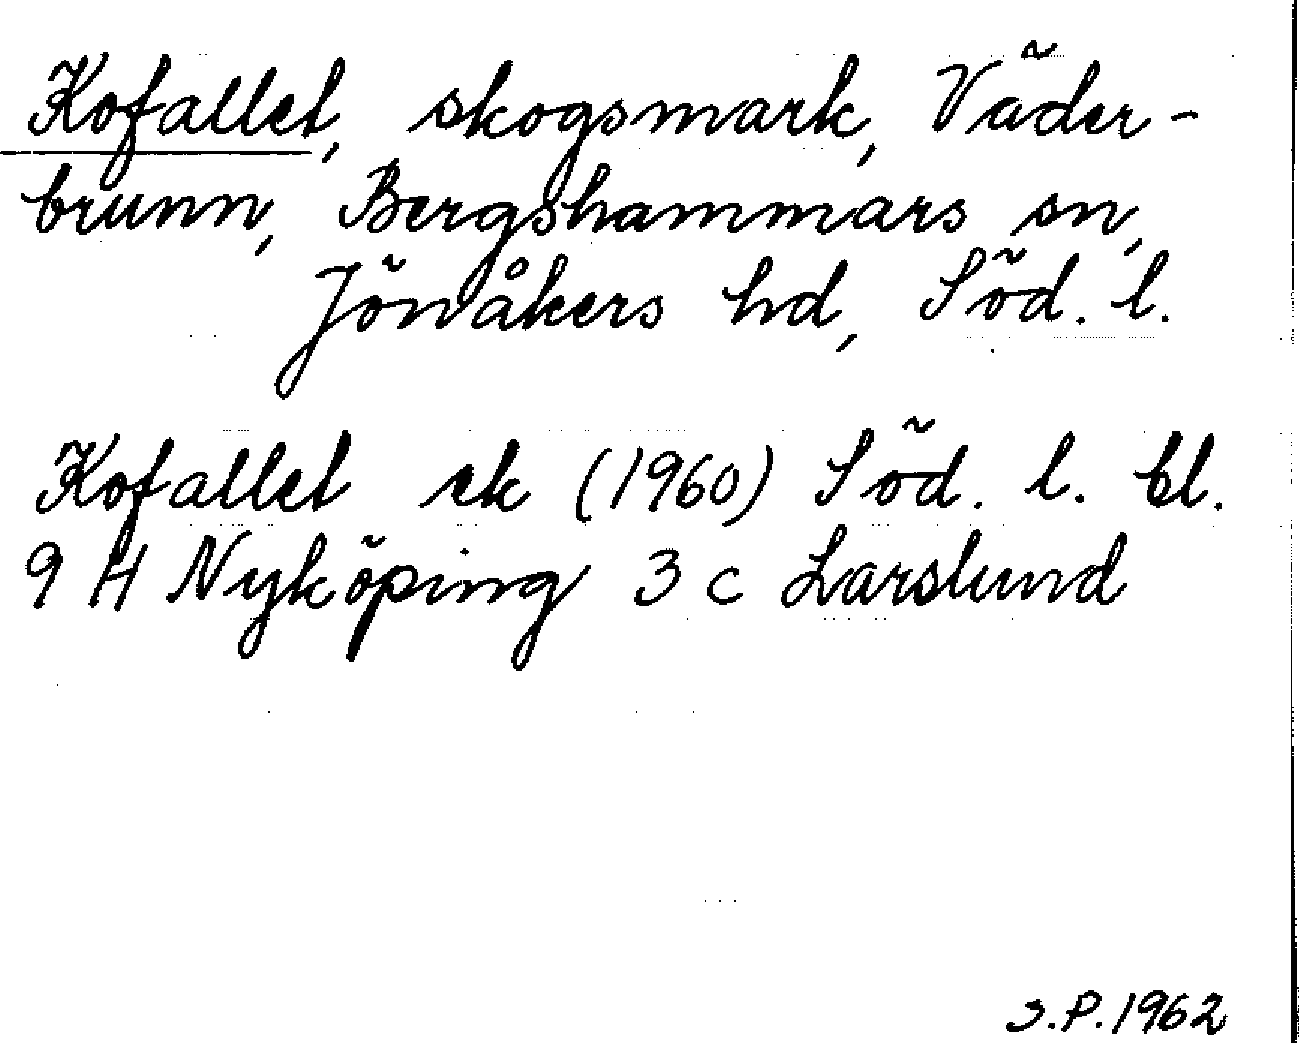 Kofallet, skogsmark, Väder-
brunn, Bergshammars sn,
Jönåkers hd, Söd. l.
Kofallet ek (1960) Söd. l. bl.
9 H Nyköping 3 c Larslund
S.P. 1962